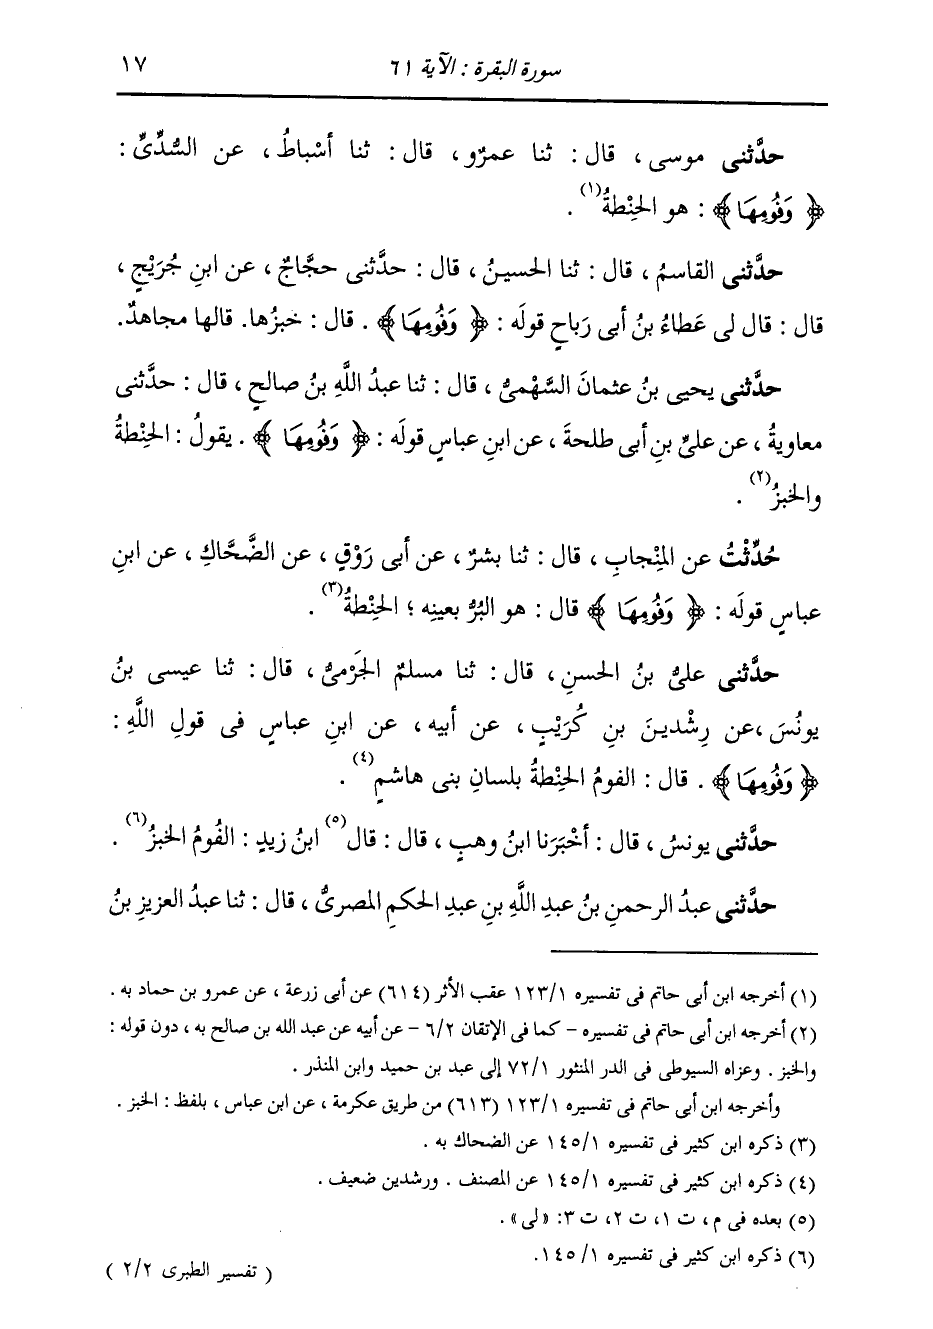 سورة البقرة : الآية ٦١
١٧
حدَّثنى موسى ، قال : ثنا عمرٌو ، قال : ثنا أسْباطُ ، عن السُّدِّىِّ :
﴿ وَفُومِهَا ﴾ : هو الحِنْطةُ(١) .
حدَّثنى القاسمُ ، قال : ثنا الحسينُ ، قال : حدَّثنى حجَّاجٌ ، عن ابنِ جُرَيْجٍ ،
قال : قال لى عَطاءُ بنُ أبى رَباحٍ قولَه : ﴿ وَفُومِهَا ﴾ . قال : خبزُها. قالها مجاهدٌ.
حدَّثنى يحيى بنُ عثمانَ السَّهْمىُّ ، قال : ثنا عبدُ اللَّهِ بنُ صالحٍ ، قال : حدَّثنى
معاويةُ ، عن علىِّ بنِ أبى طلحةَ ، عن ابنِ عباسٍ قولَه : ﴿ وَفُومِهَا ﴾ . يقولُ : الحِنْطةُ
والخبزُ(٢) .
حُدِّثْتُ عن المِنْجابِ ، قال : ثنا بشرٌ ، عن أبى رَوْقٍ ، عن الضَّحَّاكِ ، عن ابنِ
عباسٍ قولَه : ﴿ وَفُومِهَا ﴾ قال : هو البُرُّ بعينِه ؛ الحِنْطةُ(٣) .
حدَّثنى علىُّ بنُ الحسنِ ، قال : ثنا مسلمٌ الجَرْمىُّ ، قال : ثنا عيسى بنُ
يونُسَ ،عن رِشْدينَ بنِ كُرَيْبٍ ، عن أبيه ، عن ابنِ عباسٍ فى قولِ اللَّهِ :
﴿ وَفُومِهَا ﴾ . قال : الفومُ الحِنْطةُ بلسانِ بنى هاشمٍ(٤) .
حدَّثنى يونسُ ، قال : أخْبَرَنا ابنُ وهبٍ ، قال : قال(٥) ابنُ زيدٍ : الفُومُ الخبزُ(٦) .
حدَّثنى عبدُ الرحمنِ بنُ عبدِ اللَّهِ بنِ عبدِ الحكمِ المصرىُّ ، قال : ثنا عبدُ العزيزِ بنُ
(١) أخرجه ابن أبى حاتم فى تفسيره ١٢٣/١ عقب الأثر (٦١٤) عن أبى زرعة ، عن عمرو بن حماد به .
(٢) أخرجه ابن أبى حاتم فى تفسيره – كما فى الإتقان ٦/٢ – عن أبيه عن عبد الله بن صالح به ، دون قوله :
والخبز . وعزاه السيوطى فى الدر المنثور ٧٢/١ إلى عبد بن حميد وابن المنذر .
وأخرجه ابن أبى حاتم فى تفسيره ١٢٣/١ (٦١٣) من طريق عكرمة ، عن ابن عباس ، بلفظ : الخبز .
(٣) ذكره ابن كثير فى تفسيره ١٤٥/١ عن الضحاك به .
(٤) ذكره ابن كثير فى تفسيره ١٤٥/١ عن المصنف . ورشدين ضعيف .
(٥) بعده فى م ، ت ١، ت ٢، ت ٣: «لى» .
(٦) ذكره ابن كثير فى تفسيره ١٤٥/١.
( تفسير الطبرى ٢/٢ )